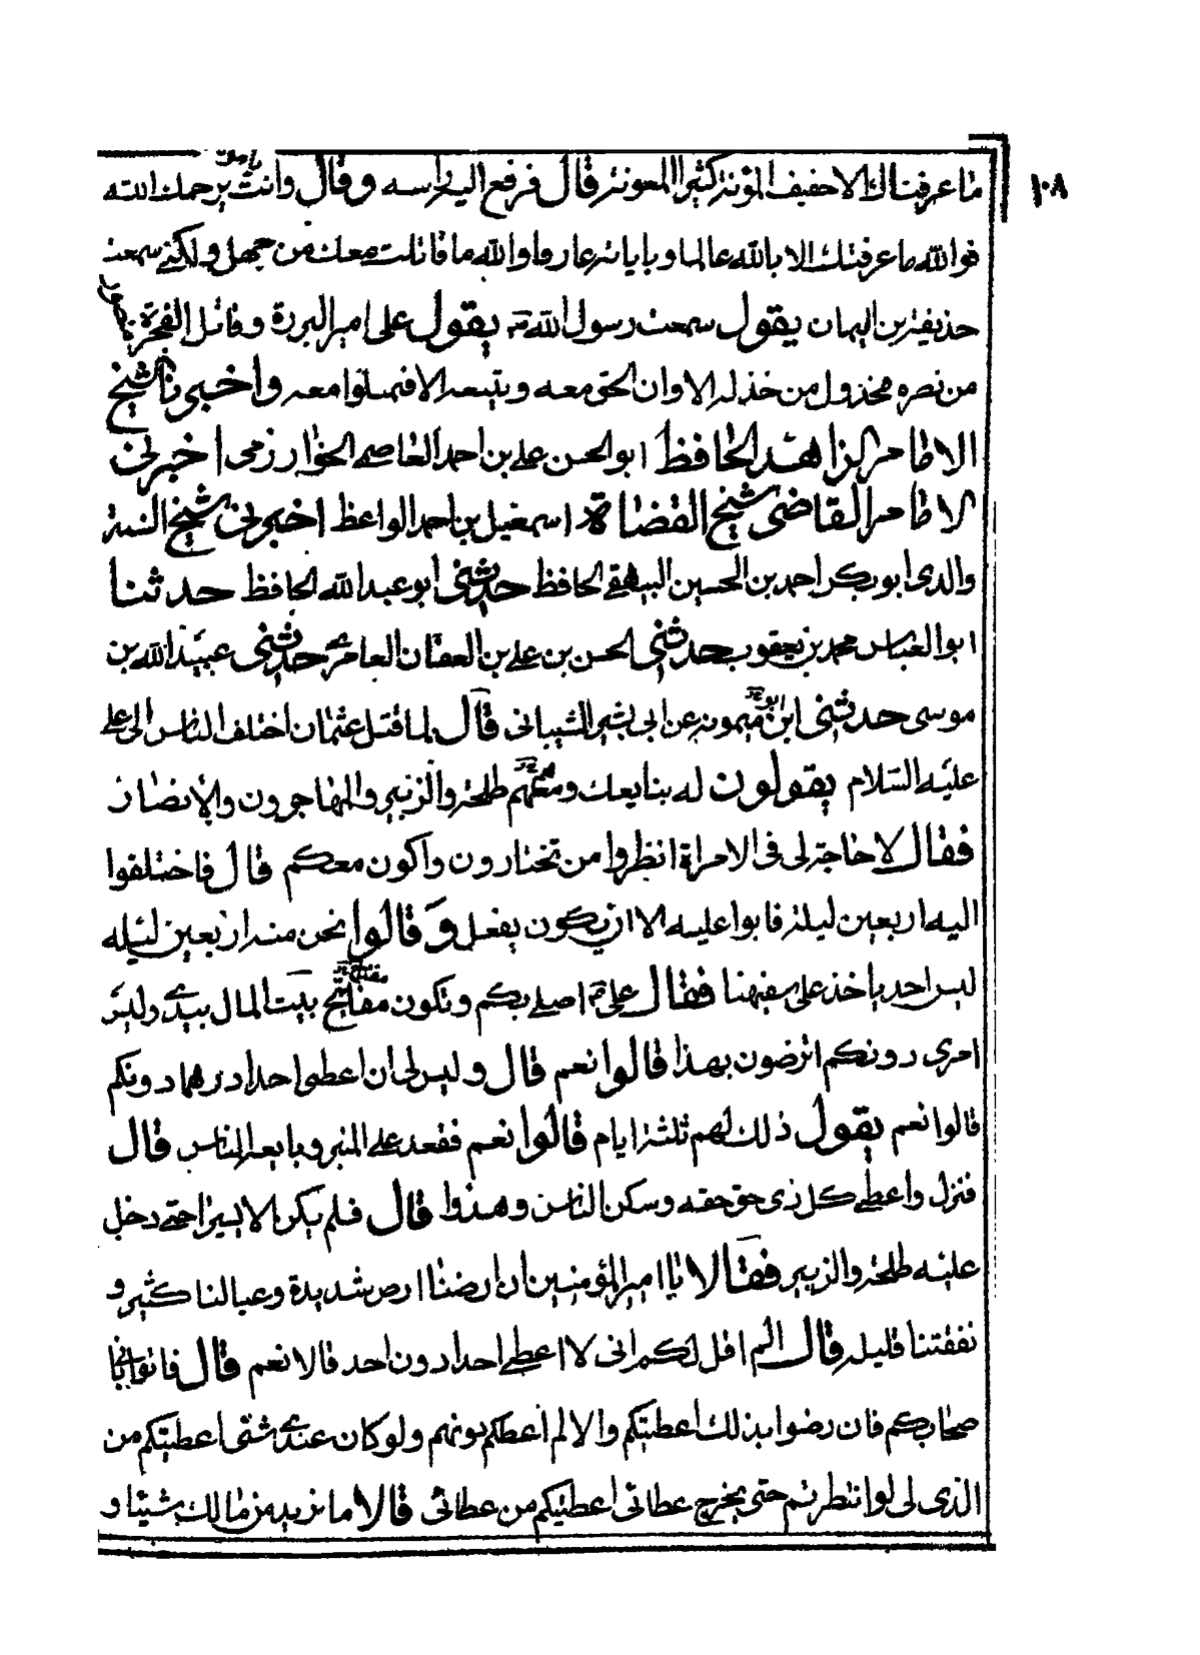 ١٠٨
ما عرفناك الا خفيف المؤنة كثير المعونة قال فرفع اليه راسه وقال وانت يرحمك الله
فوالله ما عرفتك الا بالله عالما وباياته عارفا والله ما قاتلت معك من جهل ولكني سمعت
حذيفة بن اليمان يقول سمعت رسول الله ص يقول علي امير البررة وقاتل الفجرة منصور
من نصره مخذول من خذله الا وان الحق معه ويتبعه الا فميلوا معه واخبرنا الشيخ
الامام الزاهد الحافظ ابو الحسن علي بن احمد العاصمي الخوارزمي اخبرني
الامام القاضي شيخ القضاة اسمعيل بن احمد الواعظ اخبرني شيخ السنة
والدي ابو بكر احمد بن الحسين البيهقي الحافظ حدثني ابو عبد الله الحافظ حدثنا
ابو العباس محمد بن يعقوب حدثني الحسن بن علي بن العفان العامري حدثني عبيد الله بن
موسى حدثني ابن ابو ميمونة عن ابي بشير الشيباني قال لما قتل عثمان اختلف الناس الى علي
عليه السلام يقولون له بنايعك ومعهم طلحة والزبير والمهاجرون والانصار
فقال لا حاجة لي في الامراة انظروا من تختارون واكون معكم قال فاختلفوا
اليه اربعين ليلة فابوا عليه الا ان يكون يفعل وقالوا نحن منذ اربعين ليله
ليس احد ياخذ على سفيهنا فقال علي ع اصلي بكم وتكون مفاتيح بيت المال بيدي وليس
امري دونكم اترضون بهذا قالوا نعم قال وليس لي ان اعطي احدا درهما دونكم
قالوا نعم يقول ذلك لهم ثلثة ايام قالوا نعم فقعد على المنبر وبايعه الناس قال
فنزل واعطى كل ذي حق حقه وسكن الناس وهدوا قال فلم يكن الا يسيرا حتى دخل
عليه طلحة والزبير فقالا يا امير المؤمنين ان ارضنا ارض شديدة وعيالنا كثير و
نفقتنا قليله قال الم اقل لكم اني لا اعطي احدا دون احد قالا نعم قال فاتوني با
صحابكم فان رضوا بذلك اعطيتكم والا لم اعطكم دونهم ولو كان عندي شئ اعطيتكم من
الذي لي لو انتظرتم حتى يخرج عطائي اعطيتكم من عطائي قالا ما نريد من مالك شيئا و